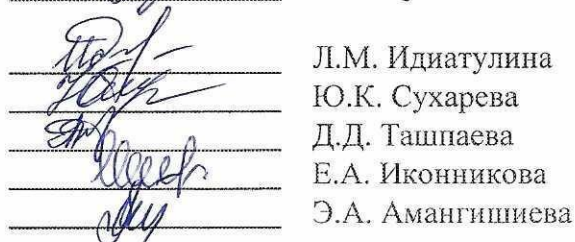 Л.М. Идиатулина
Ю.К. Сухарева
Д.Д. Ташпаева
Е.А. Иконникова
Э.А. Амангишиева